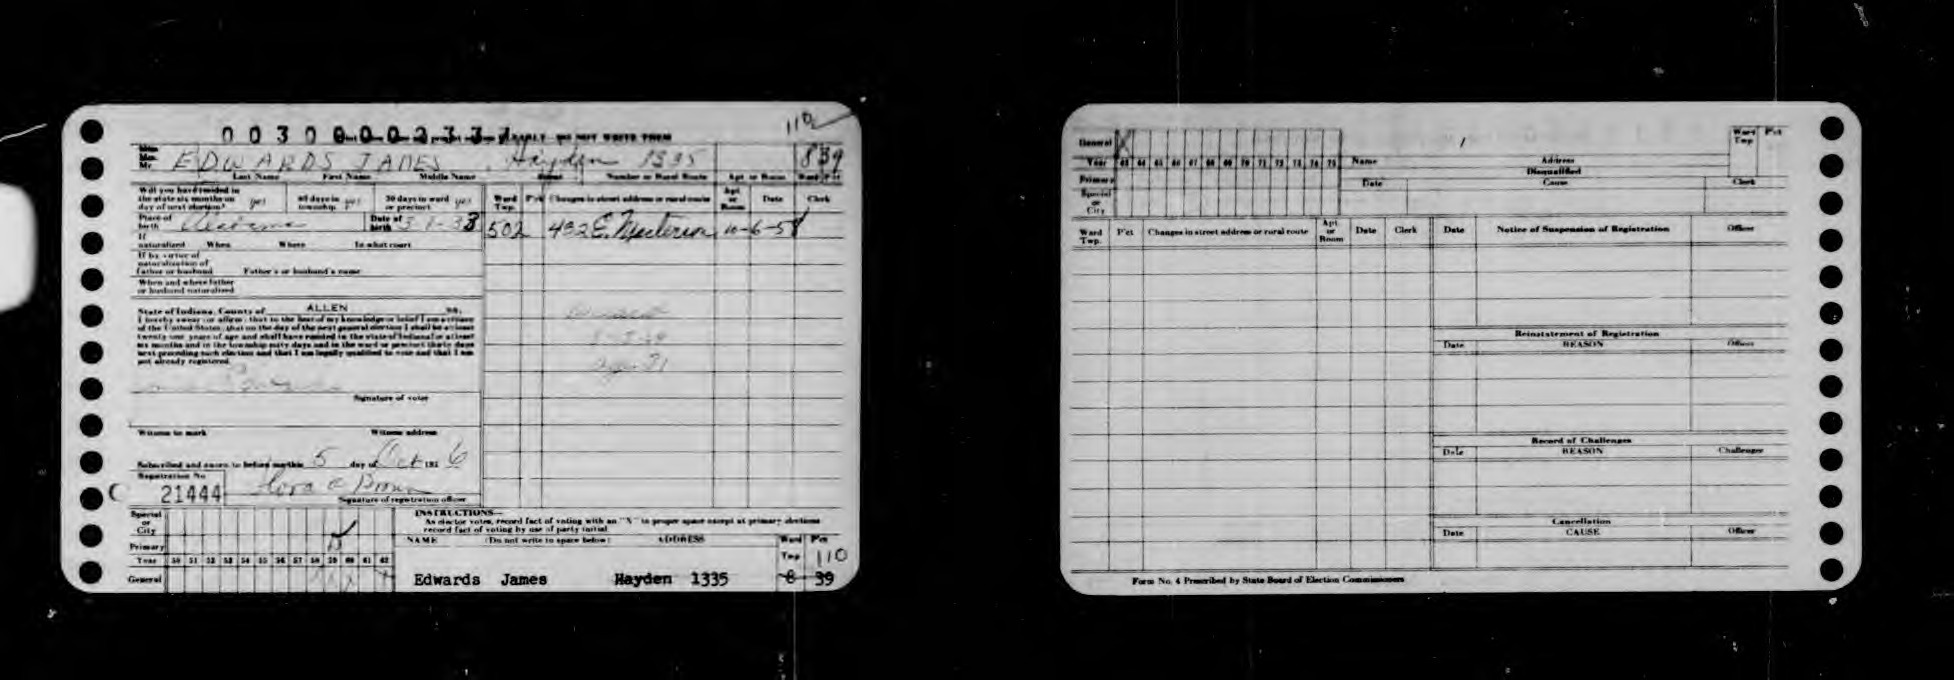 110
0030000233
EDWARDS JAMES Hayden 1335 839
Last Name First Name Middle Name Street Number or Rural Route Apt or Room Ward Pct
Will you have resided in the state six months on day of next election? yes 60 days in township yes 30 days in ward or precinct yes
Ward Twp. P'ct Changes in street address or rural route Apt or Room Date Clerk
Place of birth Alabama Date of birth 3-1-33
502 432 E. Masterson 10-6-58
If naturalized When Where In what court
If by virtue of naturalization of father or husband Father's or husband's name
When and where father or husband naturalized
State of Indiana, County of ALLEN ss.
I hereby swear (or affirm) that to the best of my knowledge or belief I am a citizen
of the United States; that on the day of the next general election I shall be at least
twenty-one years of age and shall have resided in the state of Indiana for at least
six months and in the township sixty days and in the ward or precinct thirty days
next preceding such election and that I am legally qualified to vote and that I am
not already registered.
Signature of voter
Witness to mark Witness address
Subscribed and sworn to before me this 5 day of Oct 195 6
Registration No
C 21444 Flora E Brown
Signature of registration officer
Special or City
INSTRUCTIONS—
As elector votes, record fact of voting with an "X" in proper space except at primary elections
record fact of voting by use of party initial.
Primary
NAME (Do not write in space below) ADDRESS Ward Twp P'ct
Year 50 51 52 53 54 55 56 57 58 59 60 61 62
110
General
Edwards James Hayden 1335 8 39
General X
Year 63 64 65 66 67 68 69 70 71 72 73 74 75
Primary
Special or City
Name Address Ward Twp P'ct
Disqualified
Date Cause Clerk
Ward Twp. P'ct Changes in street address or rural route Apt or Room Date Clerk
Date Notice of Suspension of Registration Officer
Reinstatement of Registration
Date REASON Officer
Record of Challenges
Date REASON Challenger
Cancellation
Date CAUSE Officer
Form No. 4 Prescribed by State Board of Election Commissioners